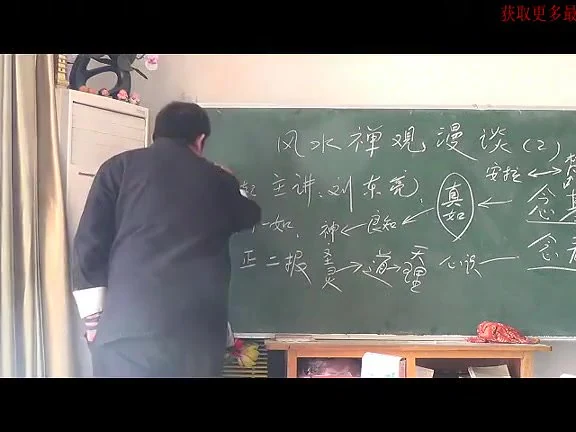 获取更多最
风水禅观漫谈(2)
安拉
主讲:刘东亮
真如
念
一如, 神 良知
正二报 圣灵 道 天理 心识
念